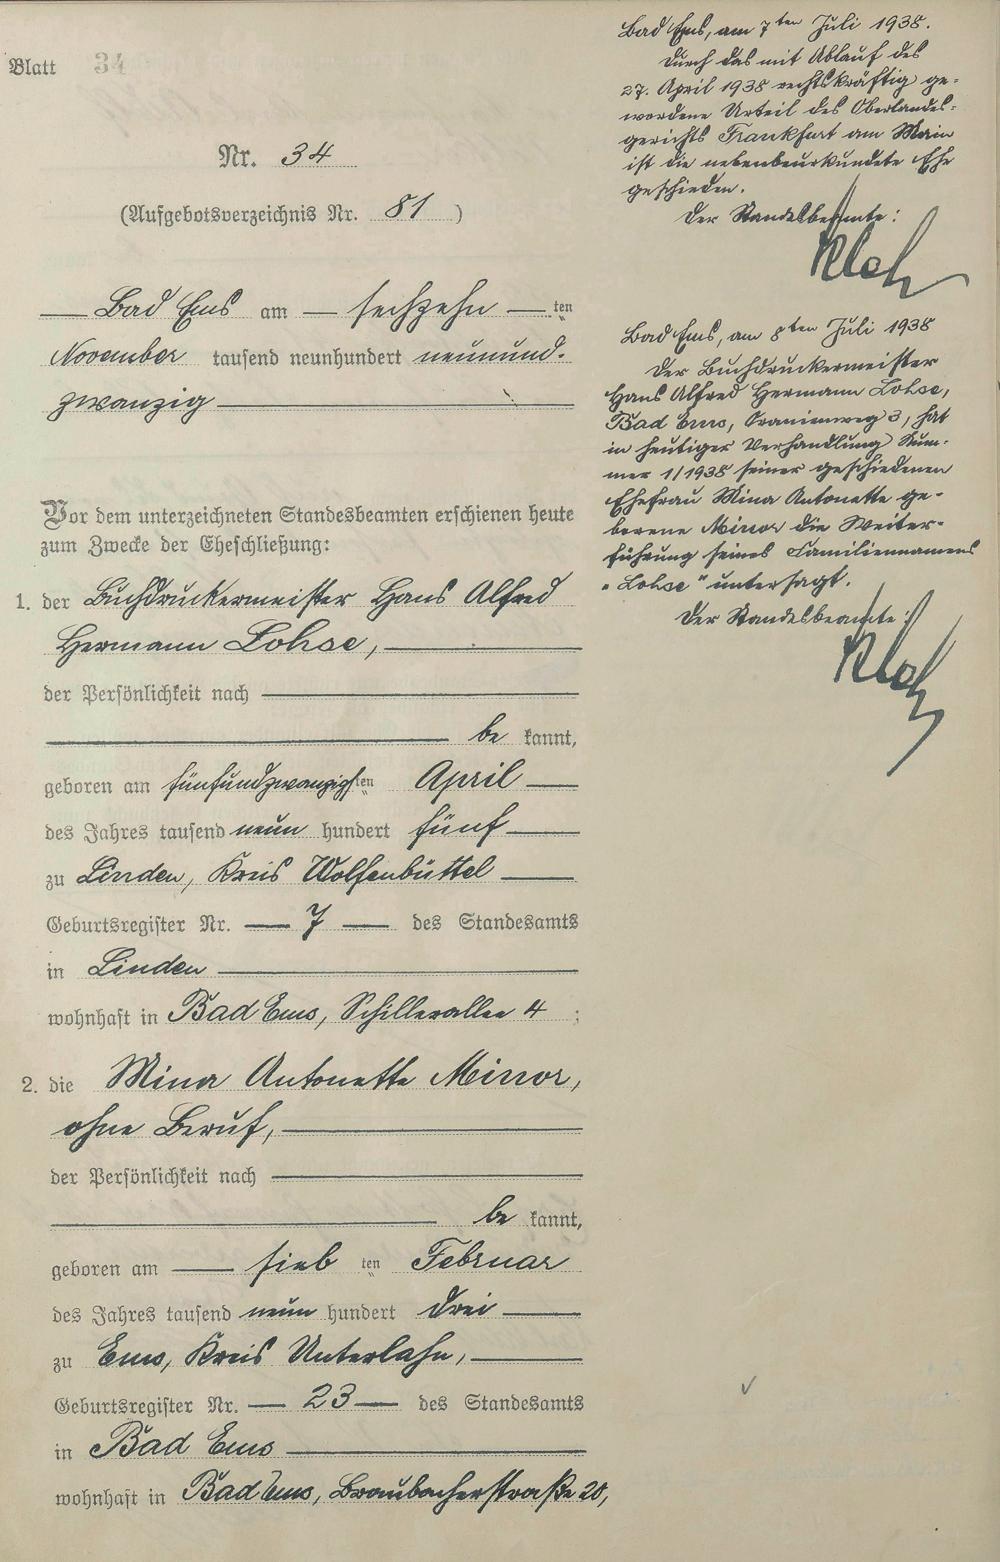 Blatt 34
Nr. 34
(Aufgebotsverzeichnis Nr. 81)
Bad Ems am sechzehn ten
November tausend neunhundert neunund-
zwanzig
Vor dem unterzeichneten Standesbeamten erschienen heute
zum Zwecke der Eheschließung:
1. der Buchdruckermeister Hans Alfred
Hermann Lohse,
der Persönlichkeit nach
be kannt,
geboren am fünfundzwanzigsten April
des Jahres tausend neun hundert fünf
zu Linden, Kreis Wolfenbüttel
Geburtsregister Nr. 7 des Standesamts
in Linden
wohnhaft in Bad Ems, Schillerallee 4 ;
2. die Mina Antonette Minor,
ohne Beruf,
der Persönlichkeit nach
be kannt,
geboren am sieb ten Februar
des Jahres tausend neun hundert drei
zu Ems, Kreis Unterlahn,
Geburtsregister Nr. 23 des Standesamts
in Bad Ems
wohnhaft in Bad Ems, Braubacherstraße 20,
Bad Ems, am 7ten Juli 1938.
Durch das mit Ablauf des
27. April 1938 rechtskräftig ge-
wordene Urteil des Oberlandes-
gerichts Frankfurt am Main
ist die nebenbeurkundete Ehe
geschieden.
Der Standesbeamte:
Bad Ems, am 8ten Juli 1938
Der Buchdruckermeister
Hans Alfred Hermann Lohse,
Bad Ems, Oranienweg 3, hat
in heutiger Verhandlung Num-
mer 1/1938 seiner geschiedenen
Ehefrau Mina Antonette ge-
borene Minor die Weiter-
führung seines Familiennamens
"Lohse" untersagt.
Der Standesbeamte: